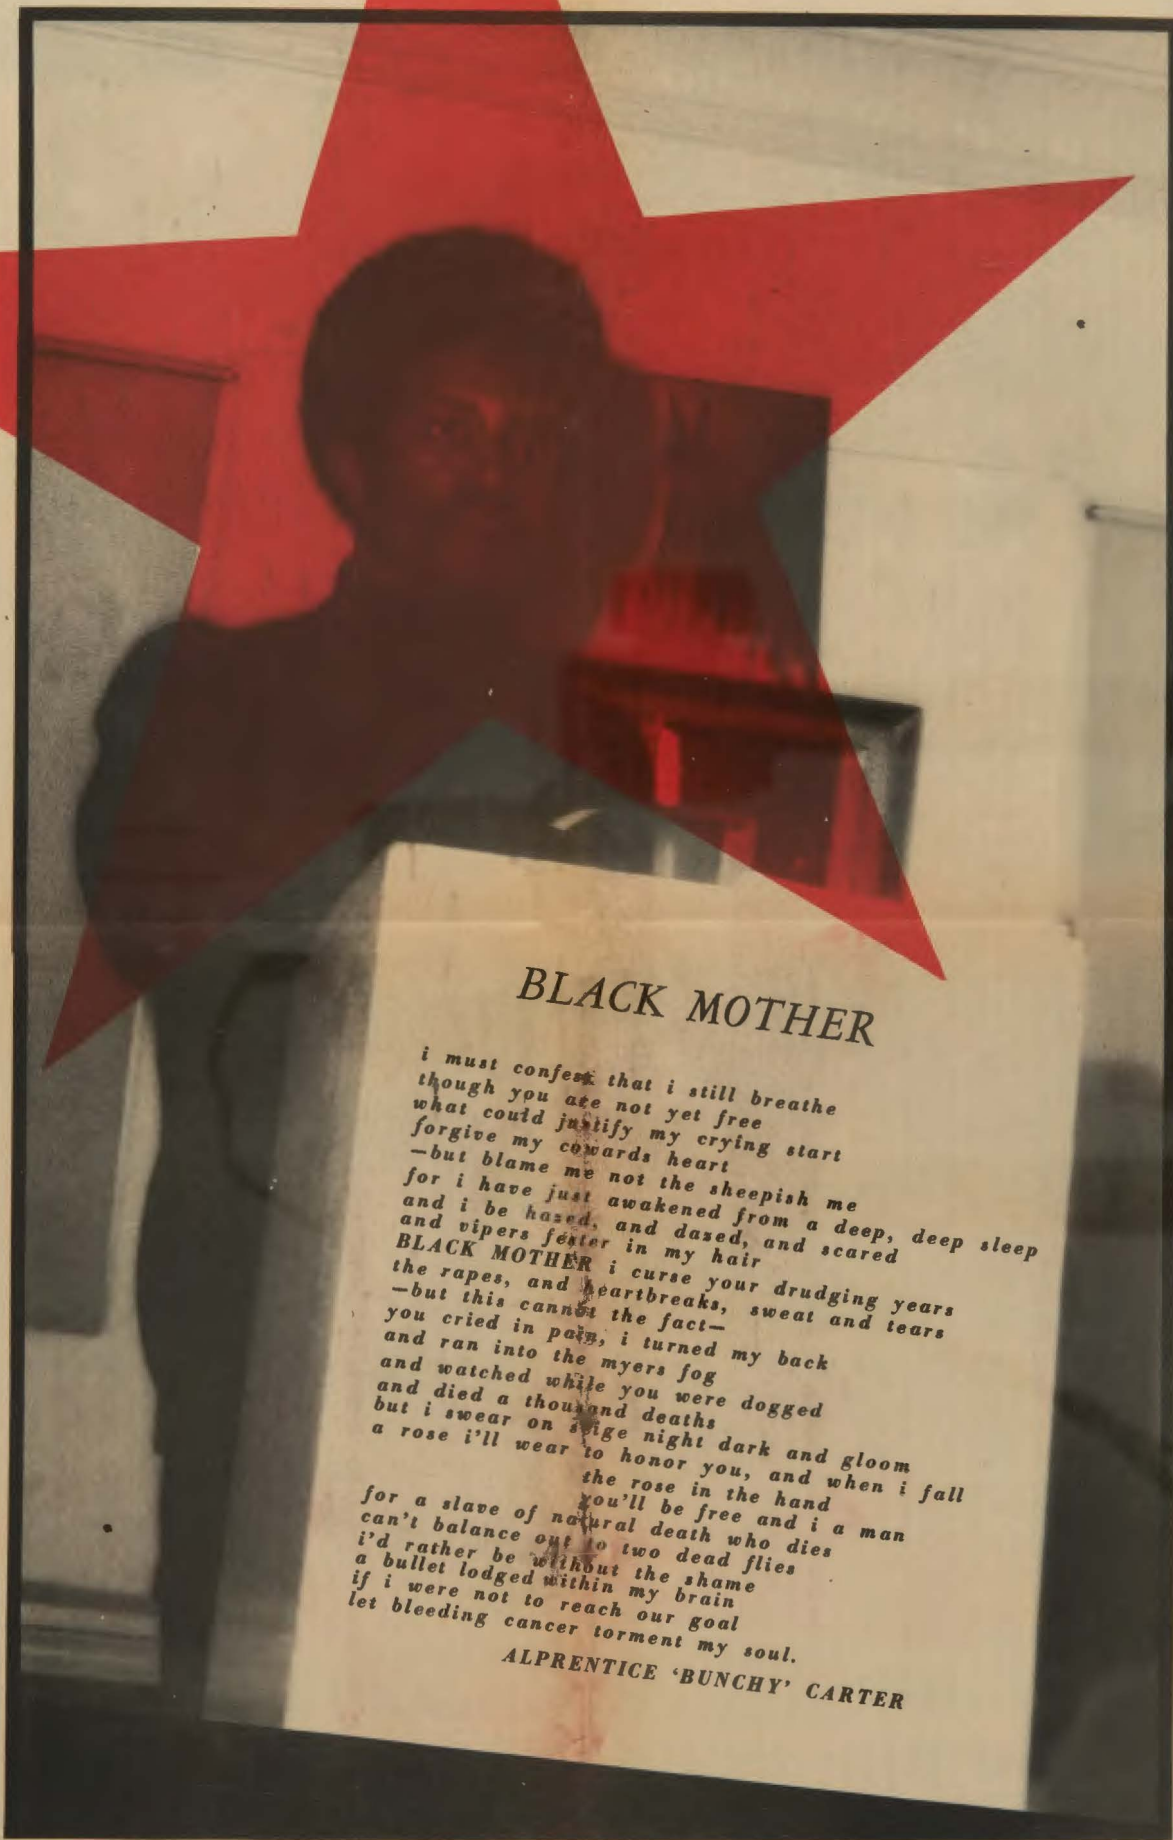 BLACK MOTHER
i must confess that i still breathe
though you are not yet free
what could justify my crying start
forgive my cowards heart
—but blame me not the sheepish me
for i have just awakened from a deep, deep sleep
and i be hazed, and dazed, and scared
and vipers fester in my hair
BLACK MOTHER i curse your drudging years
the rapes, and heartbreaks, sweat and tears
—but this cannot the fact—
you cried in pain, i turned my back
and ran into the myers fog
and watched while you were dogged
and died a thousand deaths
but i swear on seige night dark and gloom
a rose i'll wear to honor you, and when i fall
the rose in the hand
you'll be free and i a man
for a slave of natural death who dies
can't balance out to two dead flies
i'd rather be without the shame
a bullet lodged within my brain
if i were not to reach our goal
let bleeding cancer torment my soul.
ALPRENTICE 'BUNCHY' CARTER